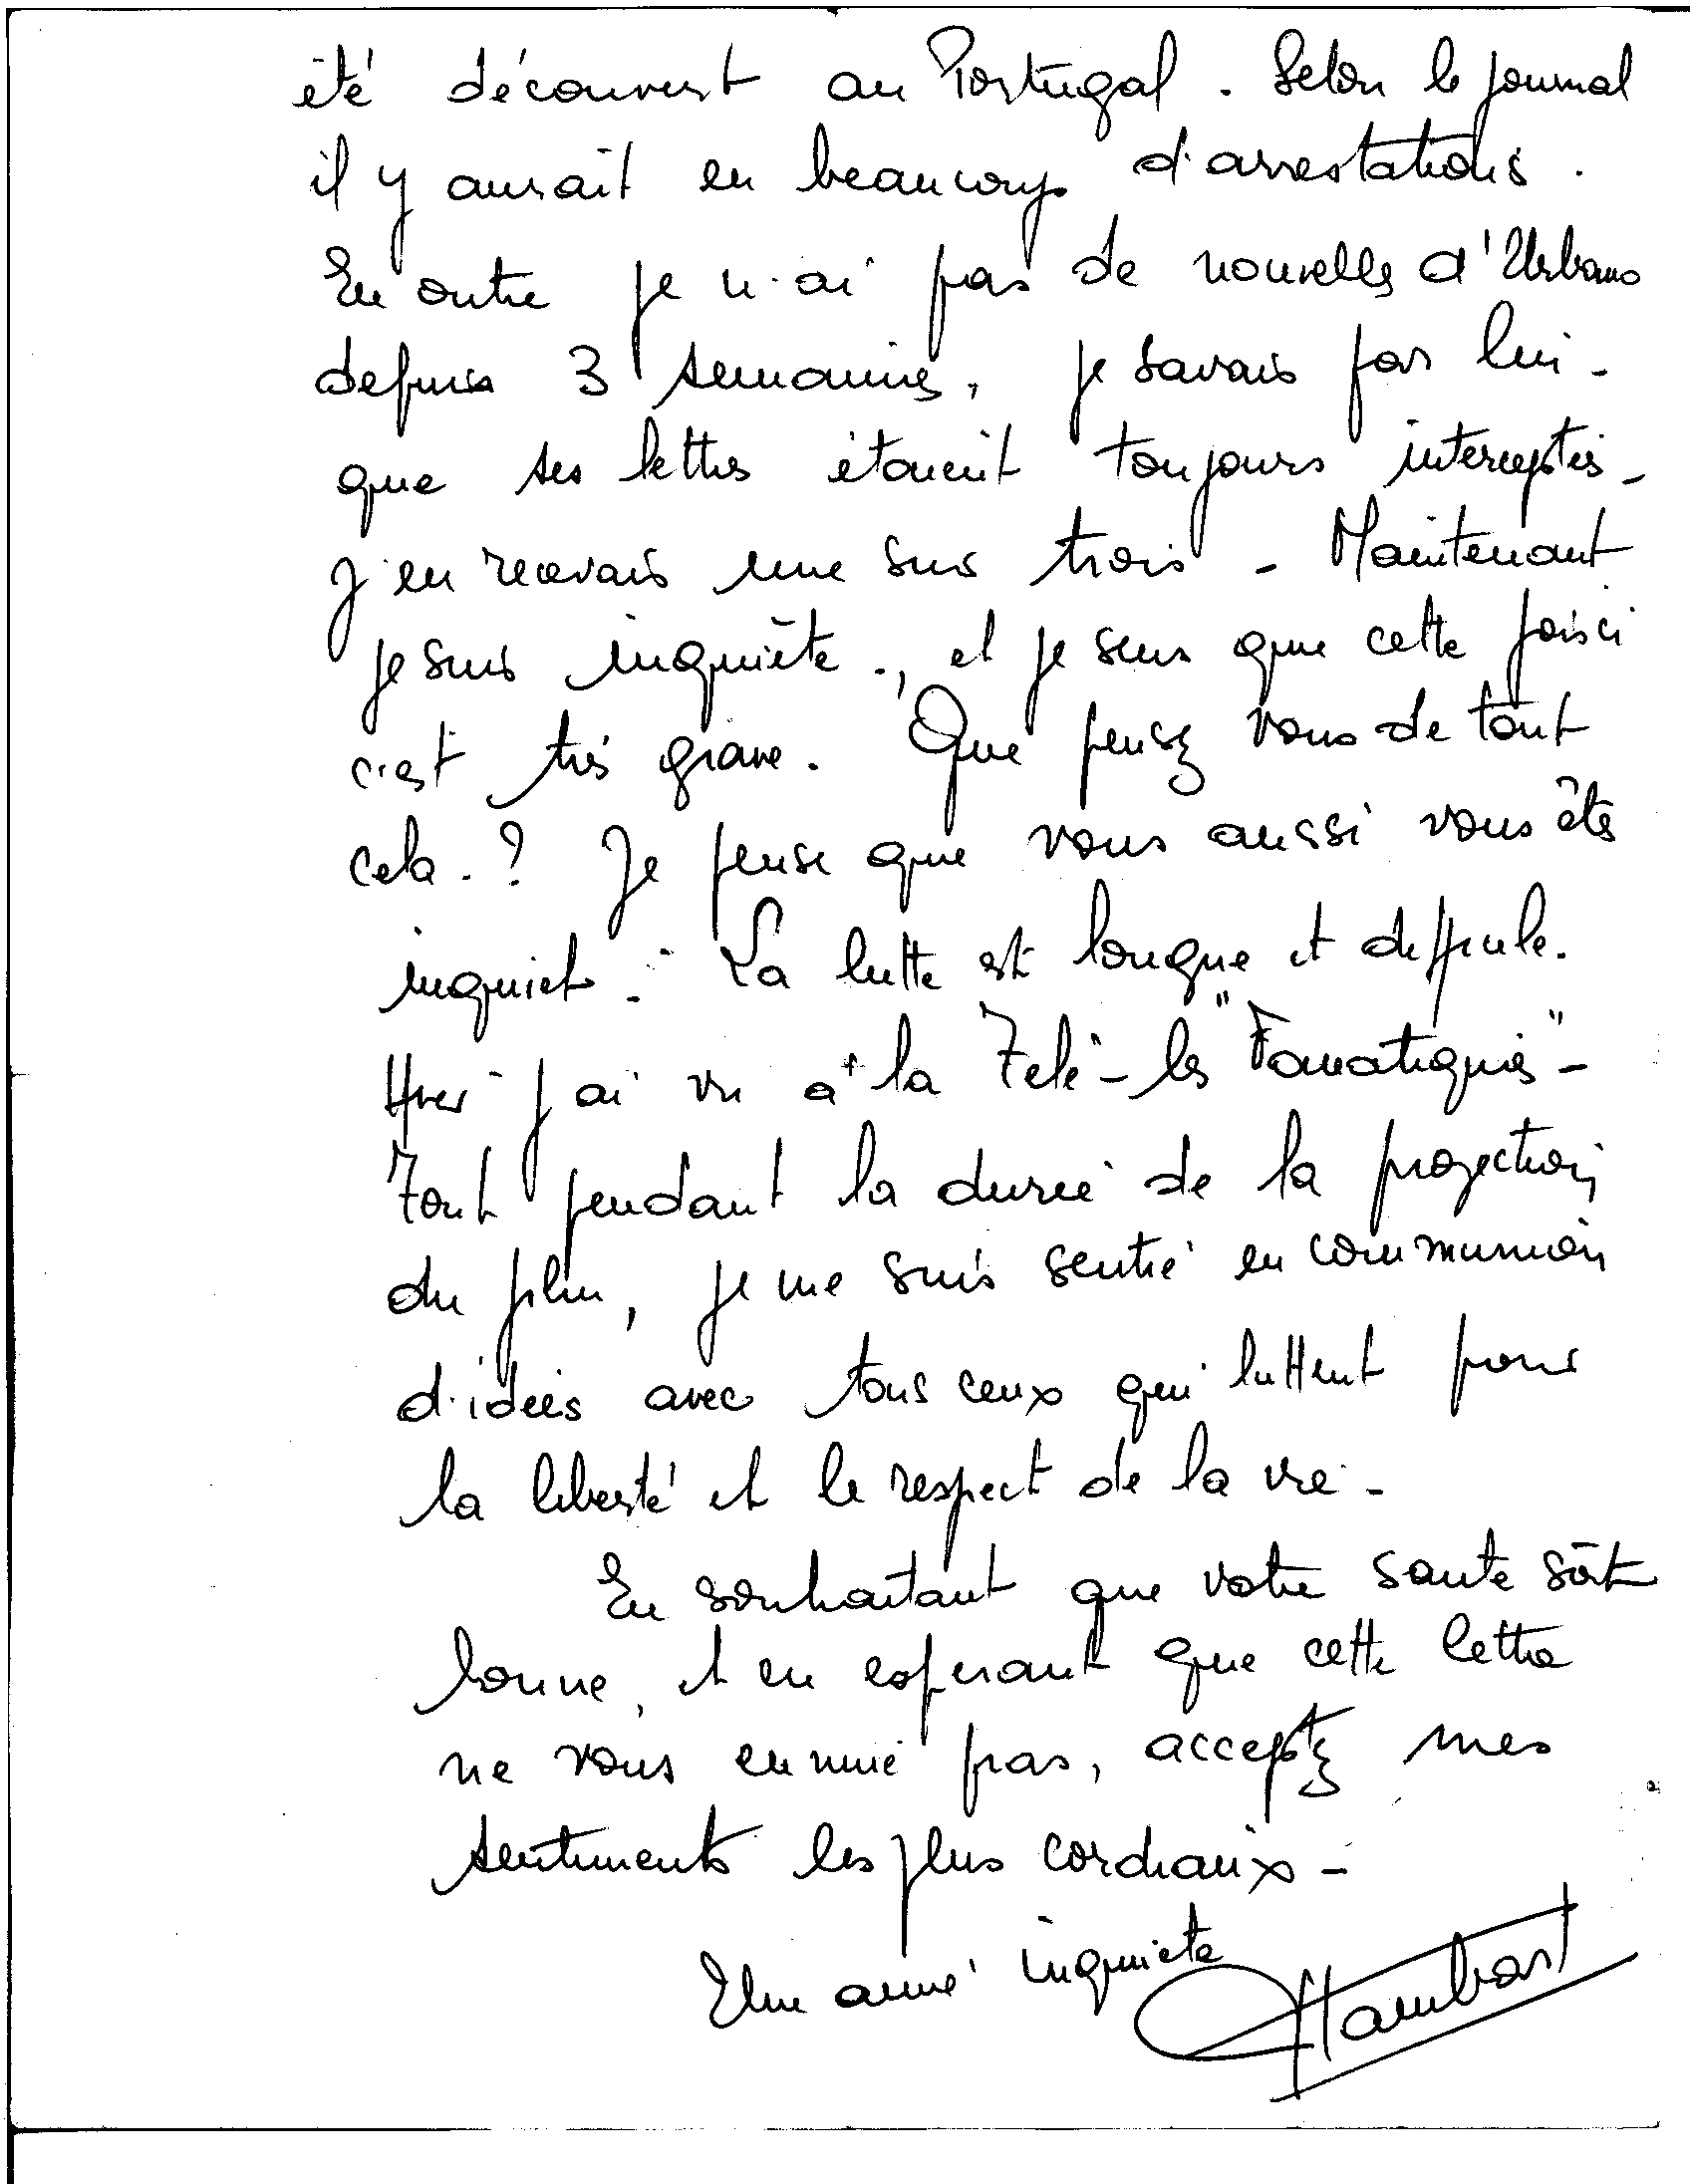 été découvert au Portugal. Selon le journal
il y aurait eu beaucoup d'arrestations.
En outre je n'ai pas de nouvelles d'Urbano
depuis 3 semaines, je savais par lui -
que ses lettres étaient toujours interceptés -
j'en recevais une sur trois - Maintenant
je suis inquiète., et je sens que cette fois ci
c'est très grave. Que pensez vous de tout
cela. ? Je pense que vous aussi vous êtes
inquiet. La lutte est longue et difficile.
Hier j'ai vu à la Télé - les "Fanatiques" -
Tout pendant la durée de la projection
du film, je me suis sentie en communion
d'idées avec tous ceux qui luttent pour
la liberté et le respect de la vie -
En souhaitant que votre santé soit
bonne, et en espérant que cette lettre
ne vous ennuie pas, acceptez mes
sentiments les plus cordiaux -
Une amie inquiète